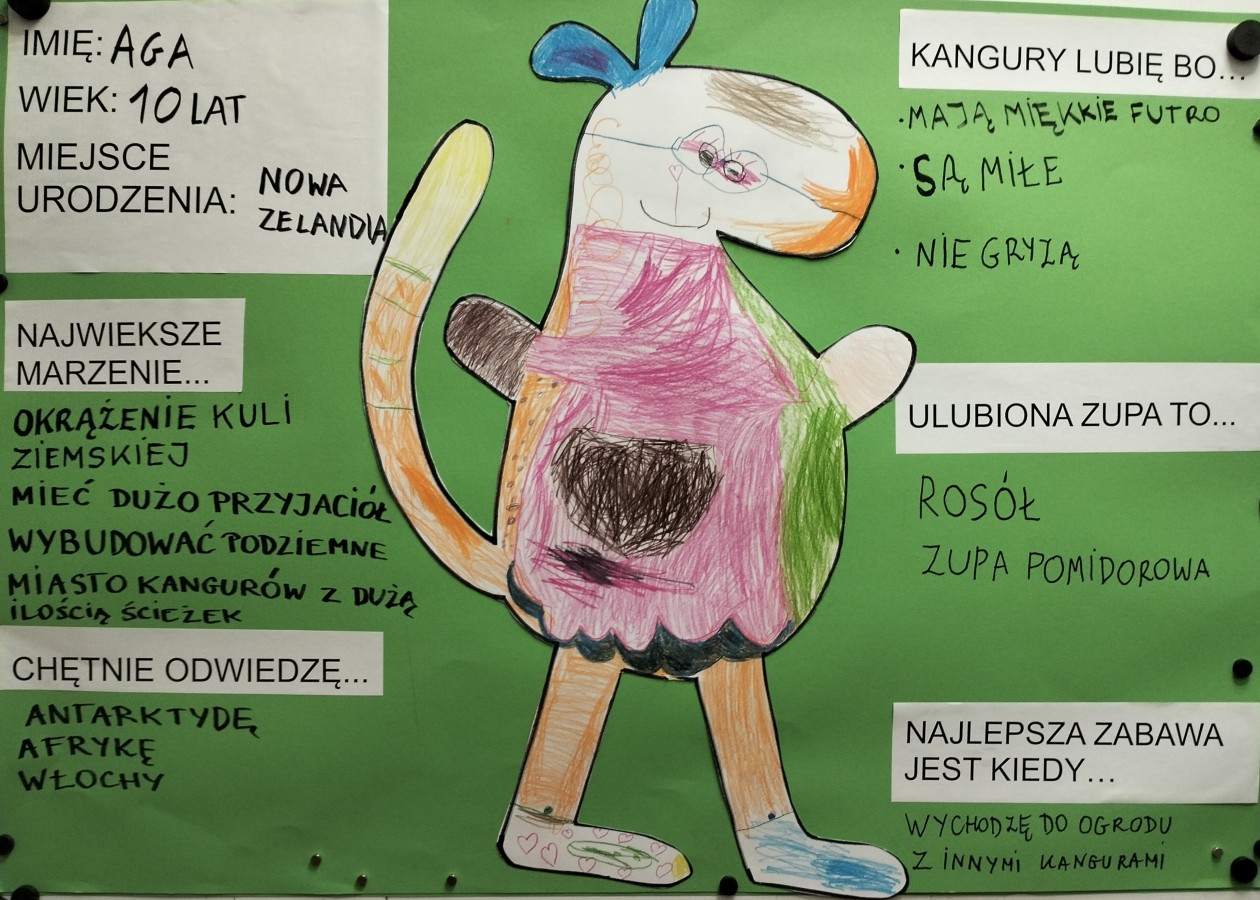 IMIĘ: AGA
WIEK: 10 LAT
MIEJSCE
URODZENIA: NOWA
ZELANDIA
NAJWIEKSZE
MARZENIE...
OKRĄŻENIE KULI
ZIEMSKIEJ
MIEĆ DUŻO PRZYJACIÓŁ
WYBUDOWAĆ PODZIEMNE
MIASTO KANGURÓW Z DUŻĄ
ILOŚCIĄ ŚCIEŻEK
CHĘTNIE ODWIEDZĘ...
ANTARKTYDĘ
AFRYKĘ
WŁOCHY
KANGURY LUBIĘ BO...
• MAJĄ MIĘKKIE FUTRO
• SĄ MIŁE
• NIE GRYZĄ
ULUBIONA ZUPA TO...
ROSÓŁ
ZUPA POMIDOROWA
NAJLEPSZA ZABAWA
JEST KIEDY...
WYCHODZĘ DO OGRODU
Z INNYMI KANGURAMI